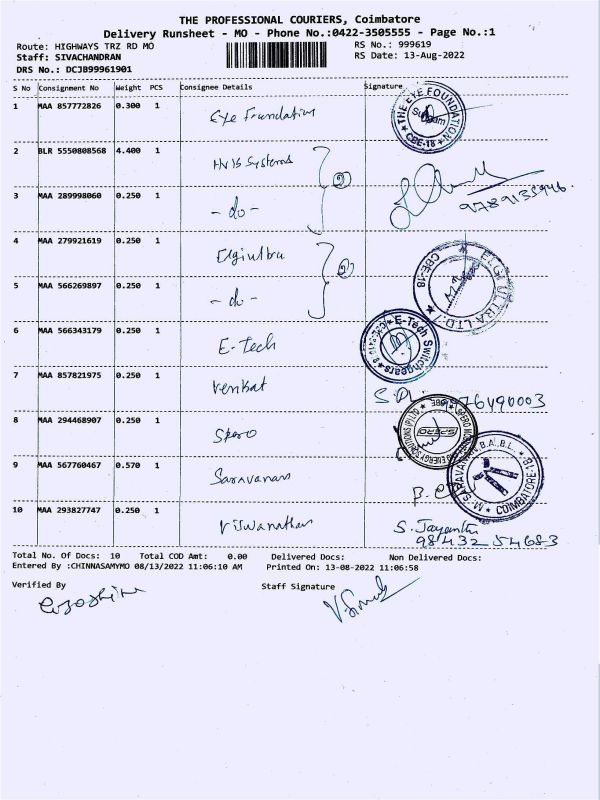 THE PROFESSIONAL COURIERS, Coimbatore
Delivery Runsheet - MO - Phone No.:0422-3505555 - Page No.:1
Route: HIGHWAYS TRZ RD MO RS No.: 999619
Staff: SIVACHANDRAN RS Date: 13-Aug-2022
DRS No.: DCJB99961901
S No Consignment No Weight PCS Consignee Details Signature
1 MAA 857772826 0.300 1 Eye Foundation THE EYE FOUNDATION CBE-18
2 BLR 5550808568 4.400 1 Systems 2
3 MAA 289998060 0.250 1 - do - 9789135946
4 MAA 279921619 0.250 1 Elgi ultra 2 ELGI ULTRA LTD CBE-18
5 MAA 566269897 0.250 1 - do -
6 MAA 566343179 0.250 1 E-Tech E-Tech Switchgears
7 MAA 857821975 0.250 1 Venkat
8 MAA 294468907 0.250 1 Spero SPERO ENERGY SOLUTIONS (P) LTD
9 MAA 567760467 0.570 1 Saravanan M. SARAVANAN, B.A., B.L. COIMBATORE-18
10 MAA 293827747 0.250 1 Viswanathan S. Jayanthi
98432 54683
Total No. Of Docs: 10 Total COD Amt: 0.00 Delivered Docs: Non Delivered Docs:
Entered By :CHINNASAMYMO 08/13/2022 11:06:10 AM Printed On: 13-08-2022 11:06:58
Verified By Staff Signature